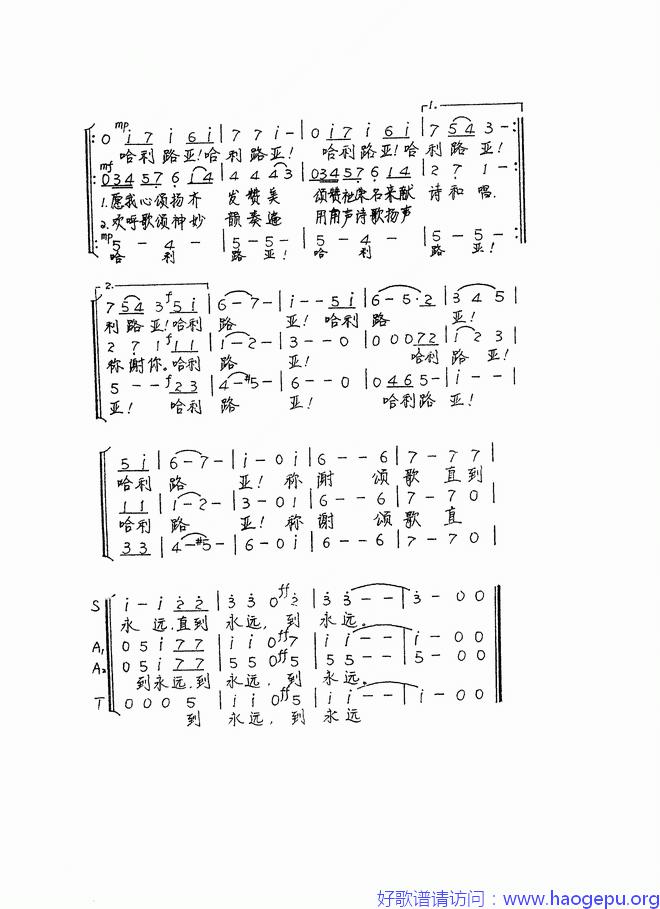 1.
mp
0 i 7 i 6 i | 7 7 i - | 0 i 7 i 6 i | 7 5 4 3 - :
哈利路亚!哈利路亚! 哈利路亚!哈利路亚!
mf
: 0 3 4 5 7 6 1 4 | 4 4 4 3 | 0 3 4 5 7 6 1 4 | 2 7 1 - :
1.愿我心颂扬齐 发赞美 颂赞祉来名来献 诗和唱.
2.欢呼歌颂神妙 韻奏遍 用角声诗歌扬声
mp
: 5 - 4 - | 5 - 5 - | 5 - 4 - | 5 - 5 - :
哈 利 路 亚! 哈 利 路 亚!
2.
7 5 4 3 f 5 i | 6 - 7 - | i - - 5 i | 6 - 5 · 2 | 3 4 5 |
利路亚!哈利 路 亚! 哈利 路 亚!
2 7 1 f 1 1 | 1 - 2 - | 3 - - 0 | 0 0 0 7 2 | 1 2 3 |
称谢你。哈利 路 亚! 哈利 路 亚!
5 - - f 2 3 | 4 - #5 - | 6 - - 0 | 0 4 6 5 - | i - - |
亚! 哈利 路 亚! 哈利路 亚!
5 i | 6 - 7 - | i - 0 i | 6 - - 6 | 7 - 7 7 |
哈利 路 亚! 称 谢 颂 歌 直到
1 1 | 1 - 2 - | 3 - 0 1 | 6 - - 6 | 7 - 7 0 |
哈利 路 亚! 称 谢 颂 歌 直
3 3 | 4 - #5 - | 6 - 0 i | 6 - - 6 | 7 - 7 0 |
S i - i 2 2 | 3 3 0 ff 2 | 3 3 - - | 3 - 0 0
永 远,直到 永远,到 永远。
A1 0 5 i 7 7 | i i 0 ff 7 | i i - - | i - 0 0
A2 0 5 i 7 7 | 5 5 0 ff 5 | 5 5 - - | 5 - 0 0
到永远,到 永远,到 永远。
T 0 0 0 5 | i i 0 ff 5 | i i - - | i - 0 0
到 永远,到 永远
好歌谱请访问：www.haogepu.org